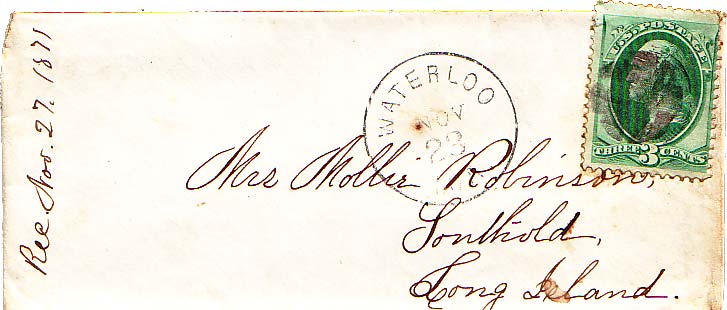 Rec. Nov. 27. 1871
WATERLOO
NOV
23
U.S. POSTAGE
THREE 3 CENTS
Mrs Mollie Robinson,
Southold,
Long Island.